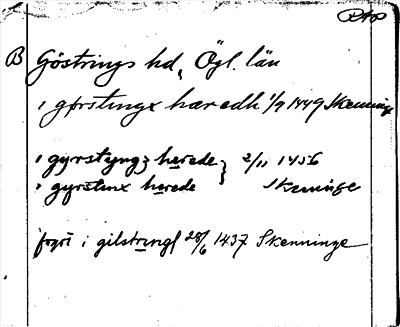 B Göstrings hd, Ögl. län
i gørstingx haredh 1/9 1449 Skenninge
i gyrstyngz herede } 2/11 1456
i gyrstinx herede Skenninge
i gilstrings 28/6 1437 Skenninge